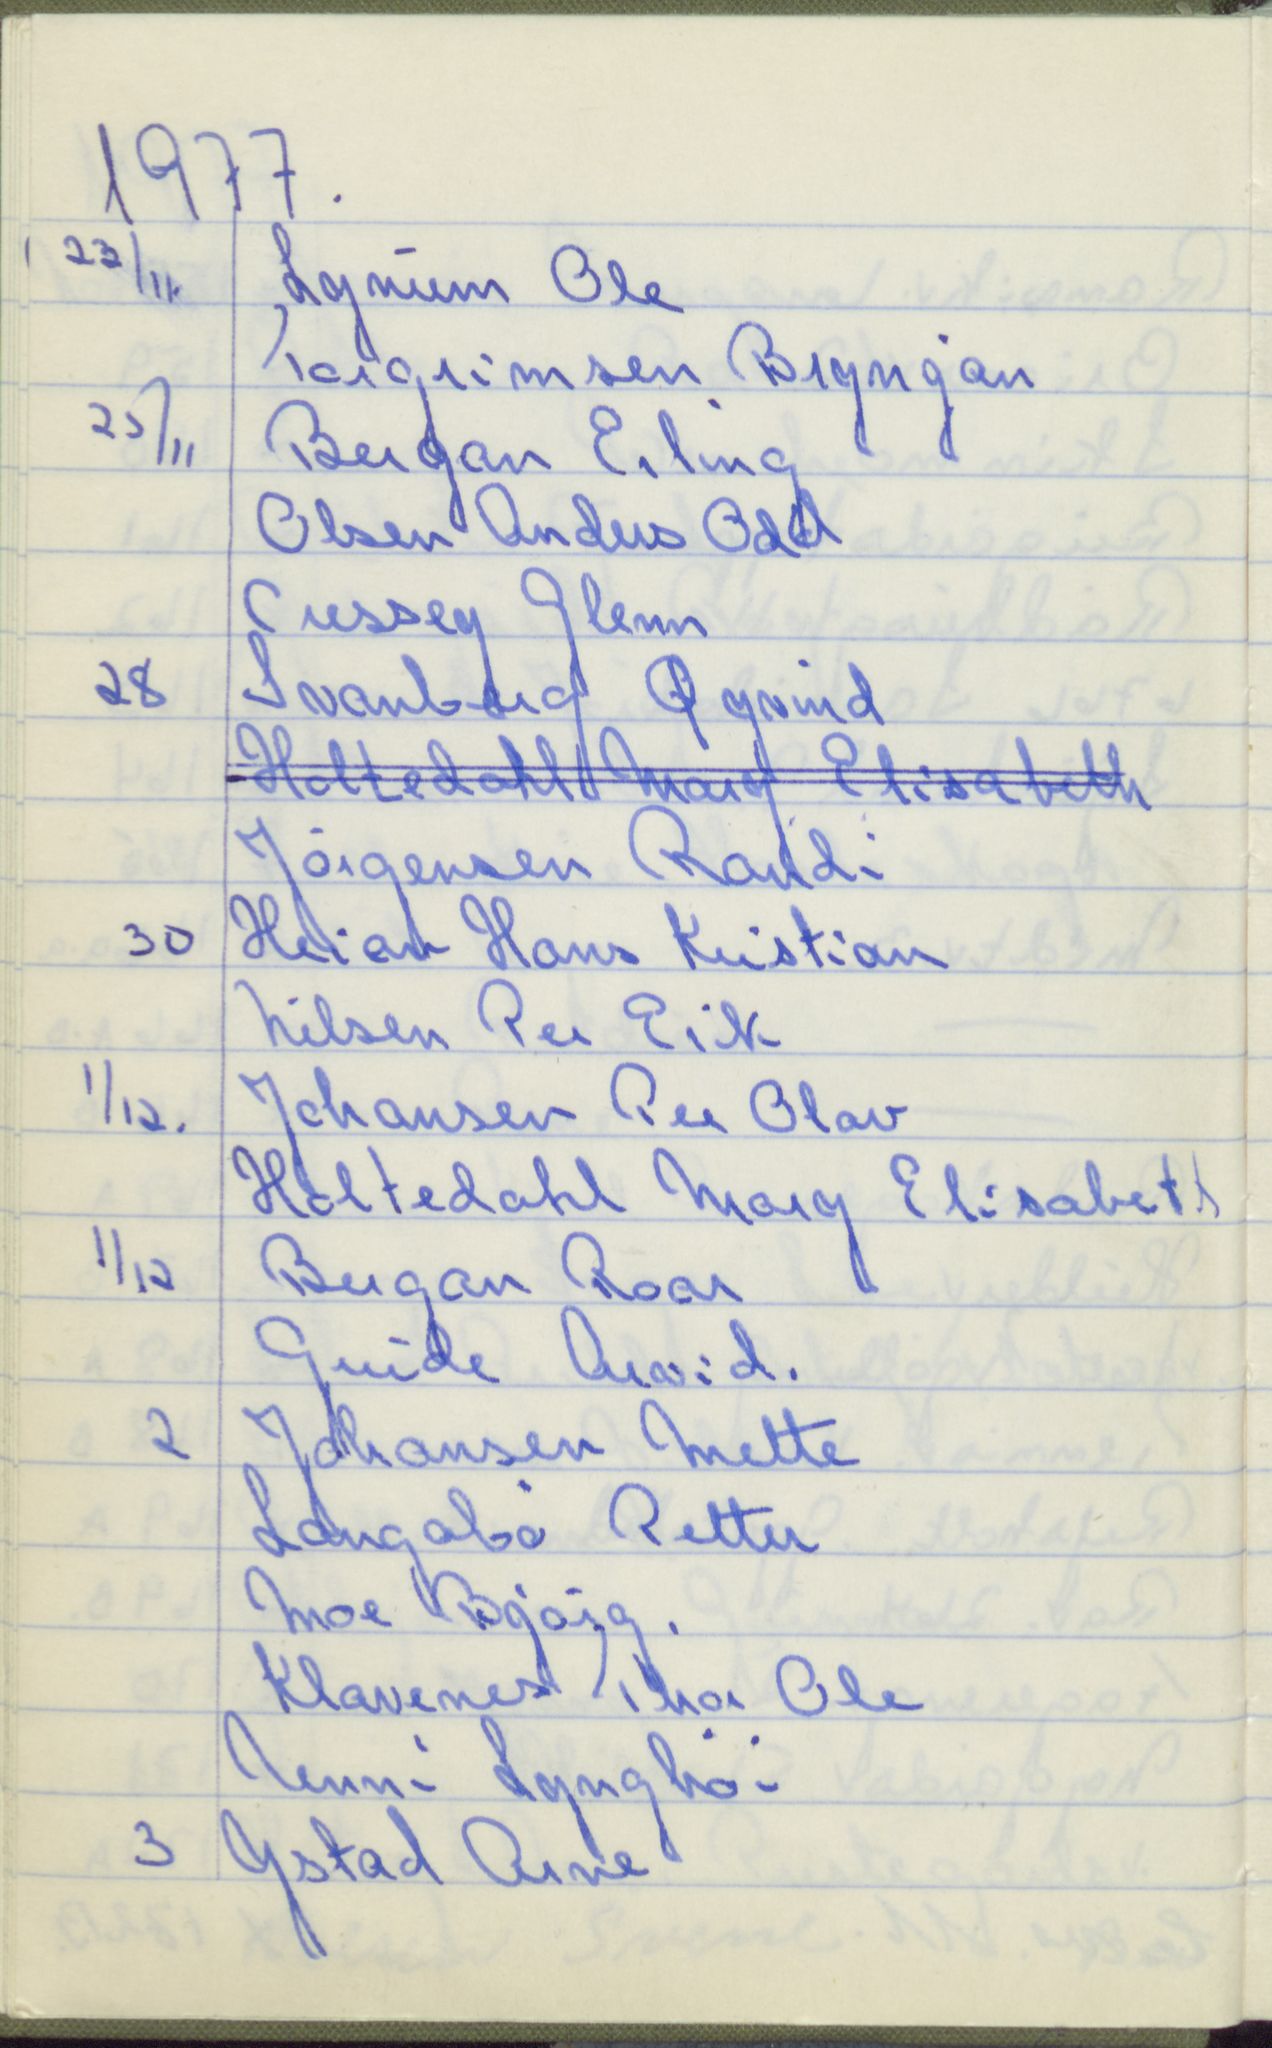 1977.
23/11. Lynum Ole
Torgrimsen Brynjar
25/11 Bergan Erling
Olsen Anders Odd
Cussey Glenn
28 Svanborg Øyvind
Holtedahl Mary Elisabeth
Jörgensen Randi
30 Heian Hans Kristian
Nilsen Per Erik
1/12. Johansen Per Olav
Holtedahl Mary Elisabeth
1/12 Bergan Roar
Guide Arvid.
2 Johansen Mette
Langabö Petter
Moe Björg.
Klavenes Thor Ole
Jenni Lynghöi
3 Ystad Arne